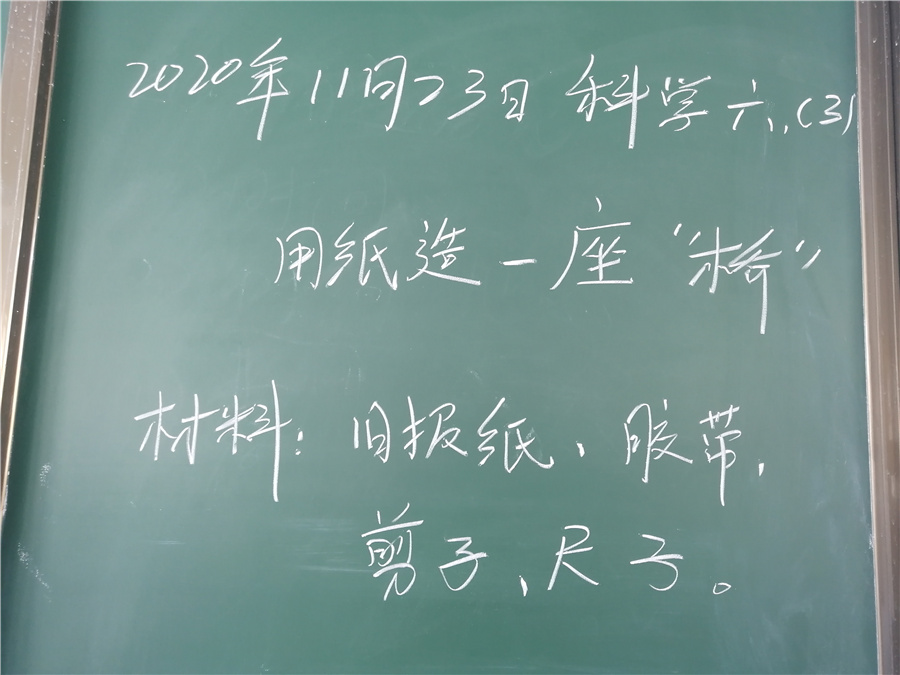 2020年11月23日 科学 六.(3)
用纸造一座“桥”
材料：旧报纸、胶带、
剪子、尺子。